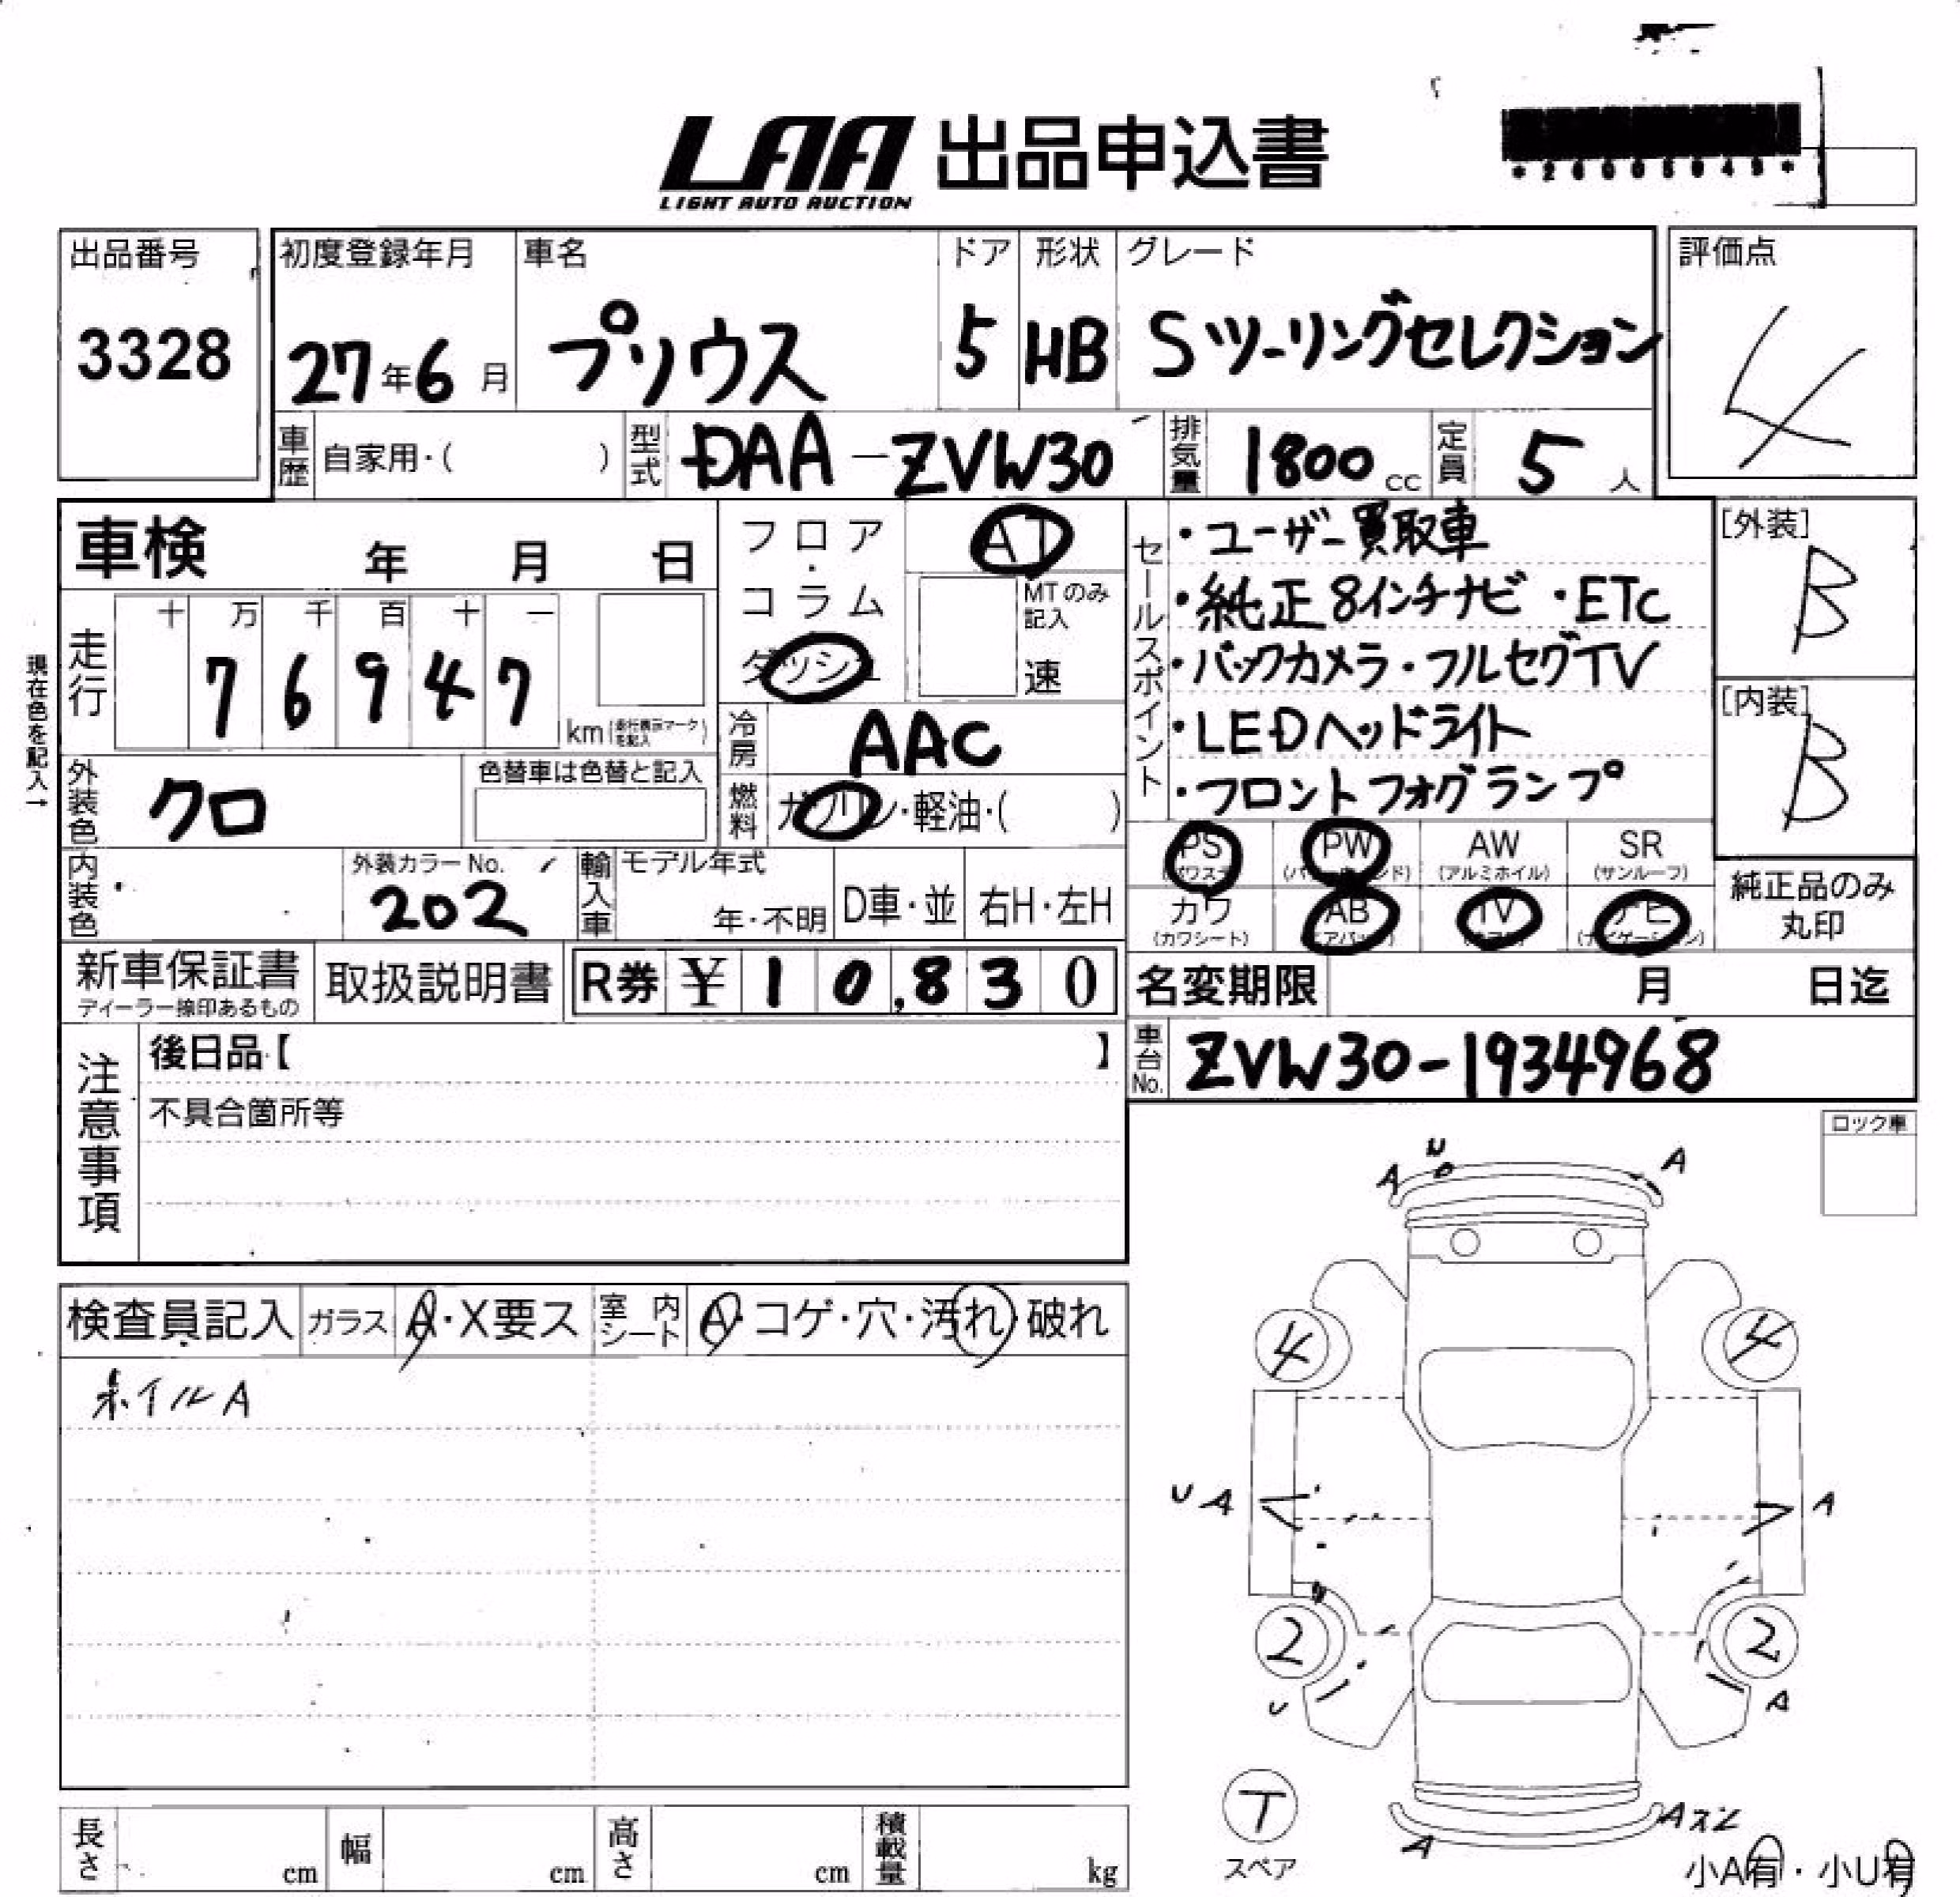 LAA 出品申込書
LIGHT AUTO AUCTION
出品番号 初度登録年月 車名 ドア 形状 グレード 評価点
3328 27年6月 プリウス 5 HB Sツーリングセレクション 4
車歴 自家用・( ) 型式 DAA-ZVW30 排気量 1800cc 定員 5人
車検 年 月 日
フロア・コラム ダッシュ
AT
MTのみ記入 速
セールスポイント
・ユーザー買取車
・純正8インチナビ ・ETC
・バックカメラ・フルセグTV
・LEDヘッドライト
・フロントフォグランプ
[外装] B
[内装] B
現在色を記入→
走行 十 万 千 百 十 一
7 6 9 4 7 km(走行表示マークを記入)
冷房 AAC
外装色 クロ 色替車は色替と記入
燃料 ガソリン・軽油・( )
PS PW AW SR
(アルミホイル) (サンルーフ)
カワ AB TV ナビ
(カワシート) (エアバッグ) (ナビゲーション)
純正品のみ丸印
内装色 外装カラーNo. 202
輸入車 モデル年式 年・不明 D車・並 右H・左H
新車保証書 取扱説明書 R券 ¥10,830
ディーラー捺印あるもの
名変期限 月 日迄
車台No. ZVW30-1934968
注意事項 後日品【 】
不具合箇所等
ロック車
検査員記入 ガラス A・X要ス 室内シート A・コゲ・穴・汚れ・破れ
ホイルA
A A
4 4
U A A
2 2
U A
T
スペア
A Aスレ
小A有・小U有
長さ cm 幅 cm 高さ cm 積載量 kg